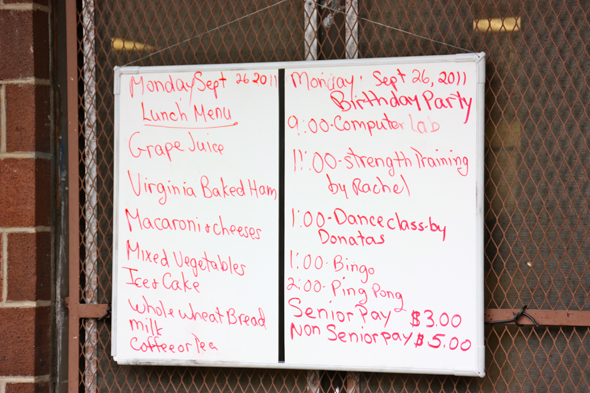 Monday Sept 26 2011
Lunch Menu
Grape Juice
Virginia Baked Ham
Macaroni & cheeses
Mixed Vegetables
Ice & Cake
Whole Wheat Bread
milk
Coffee or Tea
Monday: Sept 26, 2011
Birthday Party
9:00-Computer lab
11:00-strength Training
by Rachel
1:00-Dance class-by
Donatas
1:00-Bingo
2:00-Ping Pong
Senior Pay $3.00
Non Senior pay $5.00